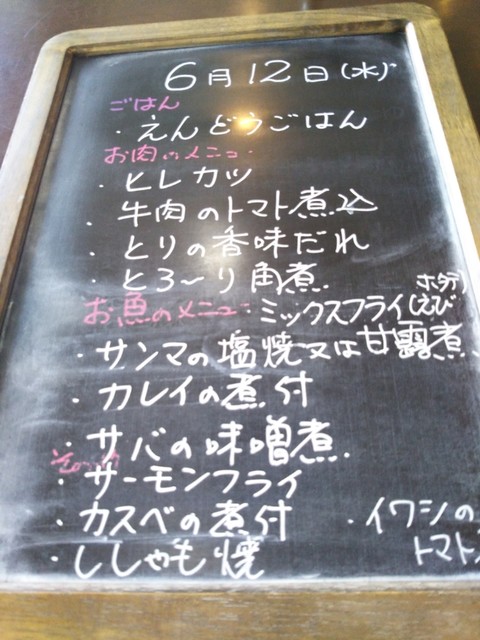 6月12日(水)
ごはん
・えんどうごはん
お肉のメニュー
・ヒレカツ
・牛肉のトマト煮込
・とりの香味だれ
・とろ〜り角煮
お魚のメニュー・ミックスフライ(えび
ホタテ)
・サンマの塩焼又は甘露煮
・カレイの煮付
・サバの味噌煮
・サーモンフライ
・カスベの煮付
・イワシの
トマト
・ししゃも焼